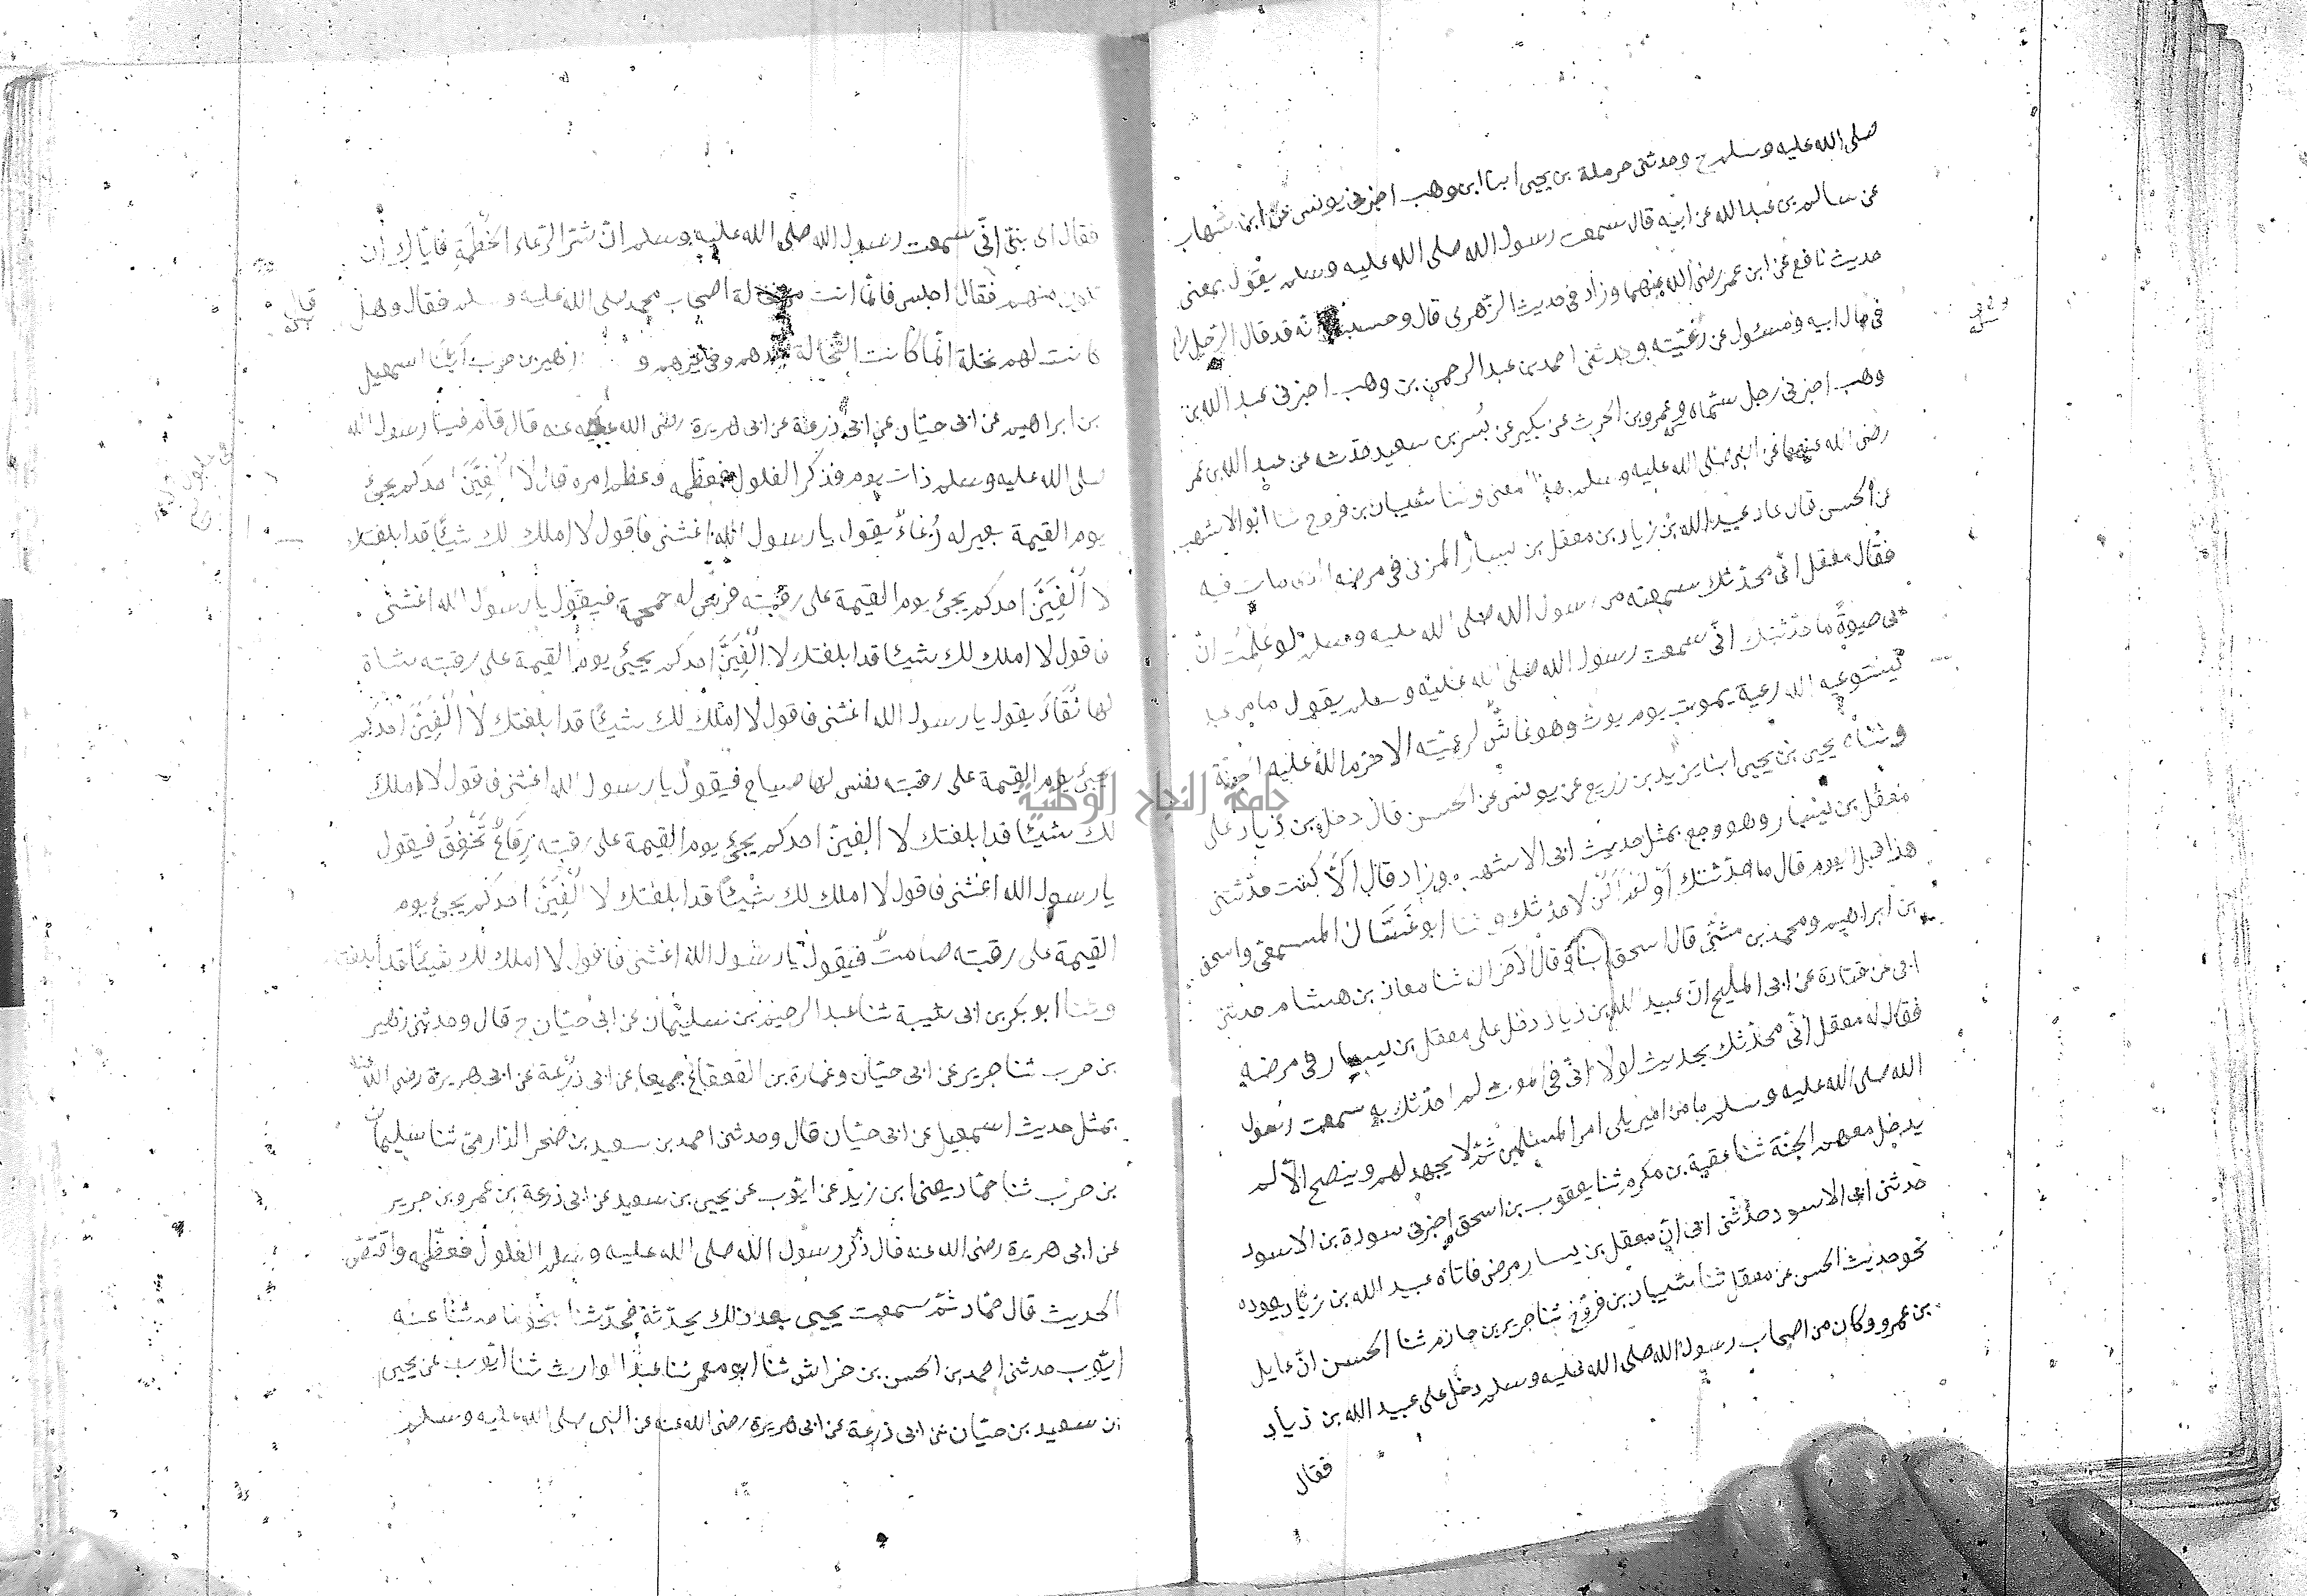 صلى الله عليه وسلم ح وحدثنى حرملة بن يحيى ابنا ابن وهب اخبرنى يونس عن ابن شهاب
عن سالم بن عبد الله عن ابيه قال سمعت رسول الله صلى الله عليه وسلم يقول بمعنى
حديث نافع عن ابن عمر رضى الله عنهما وزاد فى حديث الزهرى قال وحسبت انه قد قال الرجل راع
فى مال ابيه ومسئول عن رعيته وحدثنى احمد بن عبد الرحمن بن وهب اخبرنى عبد الله بن
وهب اخبرنى رجل سماه وعمرو بن الحرث عن بكير عن بسر بن سعيد حدثه عن عبد الله بن عمر
رضى الله عنهما عن النبى صلى الله عليه وسلم بهذا المعنى وثنا شيبان بن فروخ ثنا ابو الاشهب
عن الحسن قال عاد عبيد الله بن زياد بن معقل بن يسار المزنى فى مرضه الذى مات فيه
فقال معقل انى محدثك سمعته من رسول الله صلى الله عليه وسلم لو علمت ان
لى حيوة ما حدثتك انى سمعت رسول الله صلى الله عليه وسلم يقول ما من عبد
يسترعيه الله رعية يموت يوم يموت وهو غاش لرعيته الا حرم الله عليه الجنة
وثناه يحيى بن يحيى ابنا يزيد بن زريع عن يونس عن الحسن قال دخل بن زياد على
معقل بن يسار وهو وجع بمثل حديث ابى الاشهب وزاد قال الا كنت حدثتنى
هذا قبل اليوم قال ما حدثتك او لم اكن لاحدثك وثنا ابو غسان المسمعى واسحق
بن ابراهيم ومحمد بن مثنى قال اسحق ابنا وقال الآخران ثنا معاذ بن هشام حدثنى
ابى عن قتادة عن ابى المليح ان عبيد الله بن زياد دخل على معقل بن يسار فى مرضه
فقال له معقل انى محدثك بحديث لولا انى فى الموت لم احدثك به سمعت رسول
الله صلى الله عليه وسلم ما من امير يلى امر المسلمين ثم لا يجهد لهم وينصح الا لم
يدخل معهم الجنة ثنا عقبة بن مكرم ثنا يعقوب بن اسحق اخبرنى سودة بن الاسود
حدثنى ابى الاسود حدثنى ابى ان معقل بن يسار مرض فاتاه عبيد الله بن زياد يعوده
نحو حديث الحسن عن معقل ثنا شيبان بن فروخ ثنا جرير بن حازم ثنا الحسن ان عايذ
بن عمرو وكان من اصحاب رسول الله صلى الله عليه وسلم دخل على عبيد الله بن زياد
فقال
فقال اى بنى انى سمعت رسول الله صلى الله عليه وسلم ان شر الرعاء الحطمة فاياك ان
تكون منهم فقال اجلس فانما انت من نخالة اصحاب محمد صلى الله عليه وسلم فقال وهل
كانت لهم نخلة انما كانت النخالة بعدهم وفى غيرهم و زهير بن حرب ثنا اسمعيل
بن ابراهيم عن ابى حيان عن ابى زرعة عن ابى هريرة رضى الله عنه قال قام فينا رسول الله
صلى الله عليه وسلم ذات يوم فذكر الغلول فعظمه وعظم امره قال لا الفين احدكم يجئ
يوم القيمة بعير له رغاء يقول يا رسول الله اغثنى فاقول لا املك لك شيئا قد ابلغتك
لا الفين احدكم يجئ يوم القيمة على رقبته فرس له حمحمة فيقول يا رسول الله اغثنى
فاقول لا املك لك شيئا قد ابلغتك لا الفين احدكم يجئ يوم القيمة على رقبته شاة
لها ثغاء يقول يا رسول الله اغثنى فاقول لا املك لك شيئا قد ابلغتك لا الفين احدكم
يجئ يوم القيمة على رقبته نفس لها صياح فيقول يا رسول الله اغثنى فاقول لا املك
لك شيئا قد ابلغتك لا الفين احدكم يجئ يوم القيمة على رقبته رقاع تخفق فيقول
يا رسول الله اغثنى فاقول لا املك لك شيئا قد ابلغتك لا الفين احدكم يجئ يوم
القيمة على رقبته صامت فيقول يا رسول الله اغثنى فاقول لا املك لك شيئا قد ابلغتك
وثنا ابو بكر بن ابى شيبة ثنا عبد الرحيم بن سليمان عن ابى حيان ح قال وحدثنى زهير
بن حرب ثنا جرير عن ابى حيان وعمارة بن القعقاع جميعا عن ابى زرعة عن ابى هريرة رضى الله عنه
بمثل حديث اسمعيل عن ابى حيان قال وحدثنى احمد بن سعيد بن صخر الدارمى ثنا سليمان
بن حرب ثنا حماد يعنى ابن زيد عن ايوب عن يحيى بن سعيد عن ابى زرعة بن عمرو بن جرير
عن ابى هريرة رضى الله عنه قال ذكر رسول الله صلى الله عليه وسلم الغلول فعظمه واقتص
الحديث قال حماد ثم سمعت يحيى بعد ذلك يحدثه فحدثنا بنحو ما حدثنا عنه
ايوب حدثنى احمد بن الحسن بن خراش ثنا ابو معمر ثنا عبد الوارث ثنا ايوب عن يحيى
بن سعيد بن حيان عن ابى زرعة عن ابى هريرة رضى الله عنه عن النبى صلى الله عليه وسلم
جامعة النجاح الوطنية